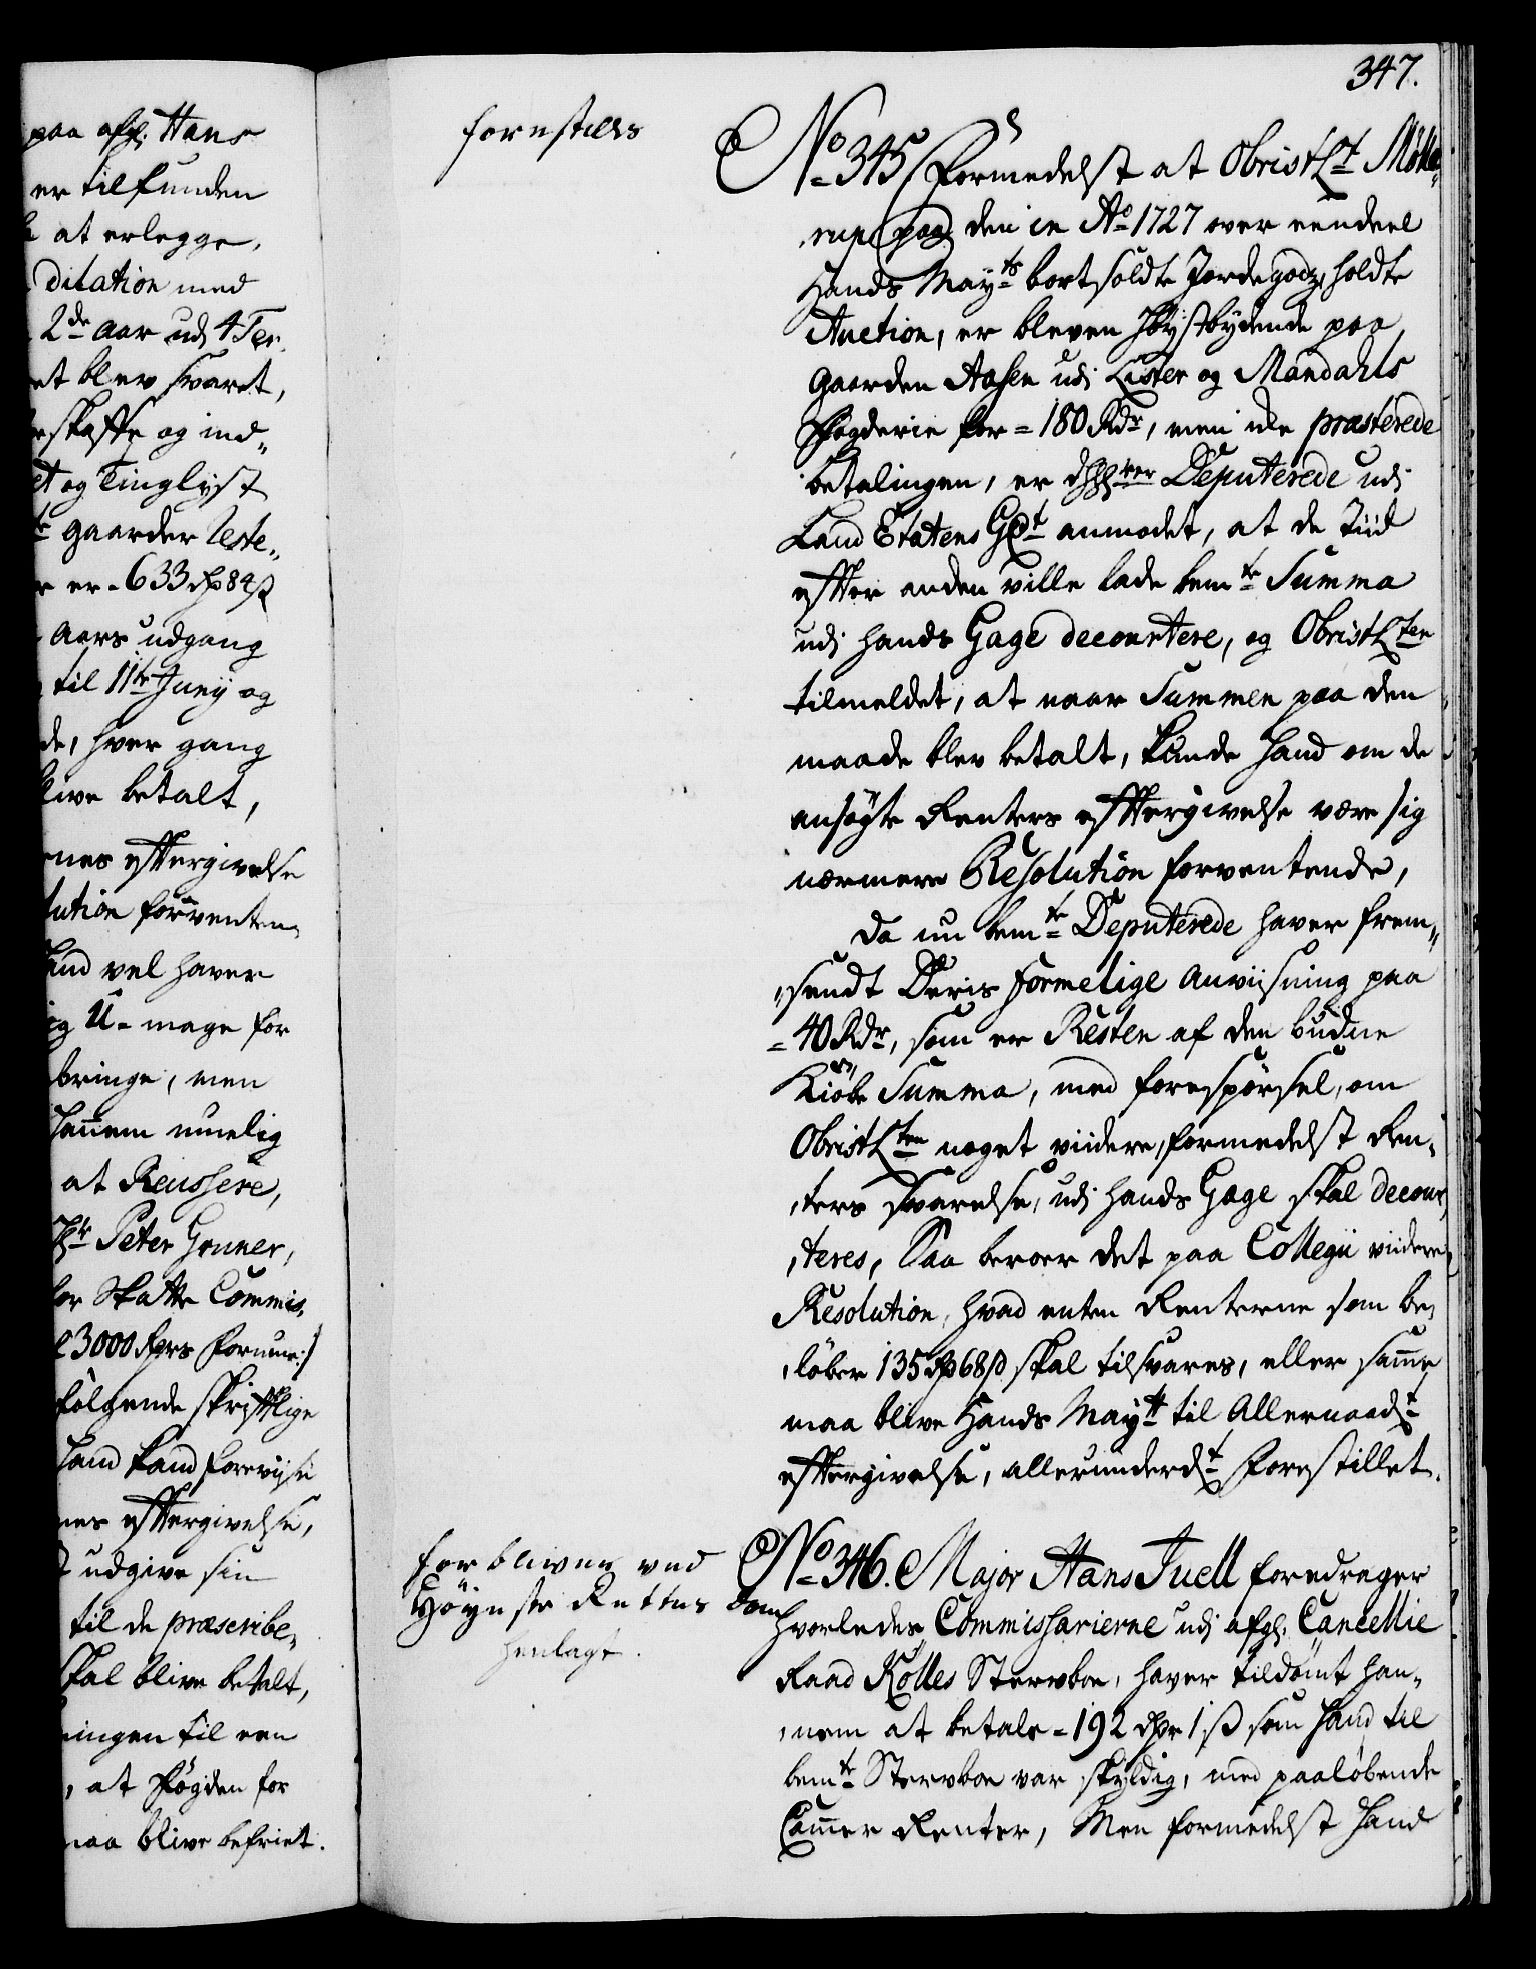 paa afg: Hans
er tilfunden
at erlegge,
ditation med
2de Aar udj 4 Ter
et blev svaret,
skaffe og ind„
et og Tinglyst
te gaarder Reste„
er - 633 rdr 84 s
Aars udgang
til 11te Junij og
de, hver gang
blive betalt,
nes efftergivelse
lution forventen
hand vel haver
ig U-mage for
bringe, men
hannem muelig
at Reussere,
Hr Peter Gruner,
for Skatte Commis„
e 3000 Rdrs formue:/
følgende skrifftlige
hand kand forevise
nes efftergivelse,
udgive sin
til de præscribe„
skal blive betalt,
ningen til een
, at Fogden for
maa blive befriet.
347.
forestilles
No 345 Formedelst at ObristLt Mölle„
„rup paa den in Ao 1727 over eendeel
Hands Mayts bortsoldte Jordegodz, holdte
Auction, er bleven Høystbydende paa
Gaarden Aasen udj Lister og Mandahls
Fogderie for = 180 Rdr, men ike præsterede
betalingen, er de Deputerede udj
Land Etatens anmodet, at de Tiid
effter anden ville lade bemte Summa
udj hands Gage decourtere, og ObristLten
tilmeldet, at naar Summen paa den
maade blev betalt, kunde hand om de
ansøgte Renters efftergivelse være sig
nærmere Resolution forventende,
Da nu bemte Deputerede haver frem„
„sendt Deris formelige Anviisning paa
= 40 Rdr, som er Resten af den budne
Kiøbe Summa, med forespørsel, om
ObristLten noget viidere, formedelst Ren„
„ters svarelse, udj hands Gage skal decour„
„teres, Saa beroer det paa Collegii viidere
Resolution, hvad enten Renterne som be„
„löber 135 rd 68 s skal tilsvares, eller samme
maa blive Hands Maytt til Allernaadt
efftergivelse, allerunderdt Forestillet.
forbliver ved
Høyeste Rettes Dom
henlagt.
No 346. Major Hans Juell foredrager
hvorledes Commissarierne udj afg: Cancellie
Raad Kölles Stervboe, haver tildömt han„
„nem at betale = 192 rdr 1 s som hand til
bemte Stervboe var skyldig, med paalöbende
Cammer Renter, Men formedelst hand